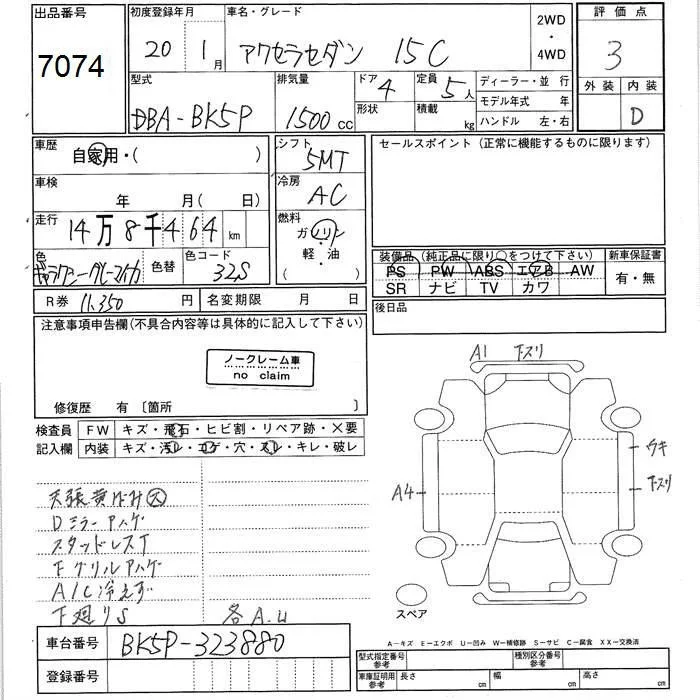 出品番号
7074
初度登録年月
20 1月
車名・グレード
アクセラセダン 15C
2WD
・
4WD
評価点
3
外装 内装
D
型式
DBA-BK5P
排気量
1500cc
ドア
4
形状
定員
5人
積載
kg
ディーラー・並行
モデル年式 年
ハンドル 左・右
車歴
自家用・( )
シフト
5MT
セールスポイント(正常に機能するものに限ります)
車検
年 月( 日)
冷房
AC
走行
14万8千464km
燃料
ガソリン
軽・油
( )
色
ギャラクシーグレーマイカ
色替
色コード
32S
装備品(純正品に限り○をつけて下さい)
PS PW ABS エアB AW
SR ナビ TV カワ
新車保証書
有・無
R券 11,350円
名変期限 月 日
後日品
注意事項申告欄(不具合内容等は具体的に記入して下さい)
ノークレーム車
no claim
修復歴 有〔箇所 〕
検査員
記入欄
FW キズ・飛石・ヒビ割・リペア跡・×要
内装 キズ・汚レ・コゲ・穴・スレ・キレ・破レ
天張黄バミ大
Dミラーアハゲ
スタッドレスT
Fグリルアハゲ
A/C冷えず
下廻りS
各A.U
A1 下スリ
ウキ
下スリ
A4
スペア
車台番号
BK5P-323880
登録番号
A-キズ E-エクボ U-凹み W-補修跡 S-サビ C-腐食 XX-交換済
型式指定番号
参考
種別区分番号
参考
車庫証明用
参考
長さ cm 幅 cm 高さ cm